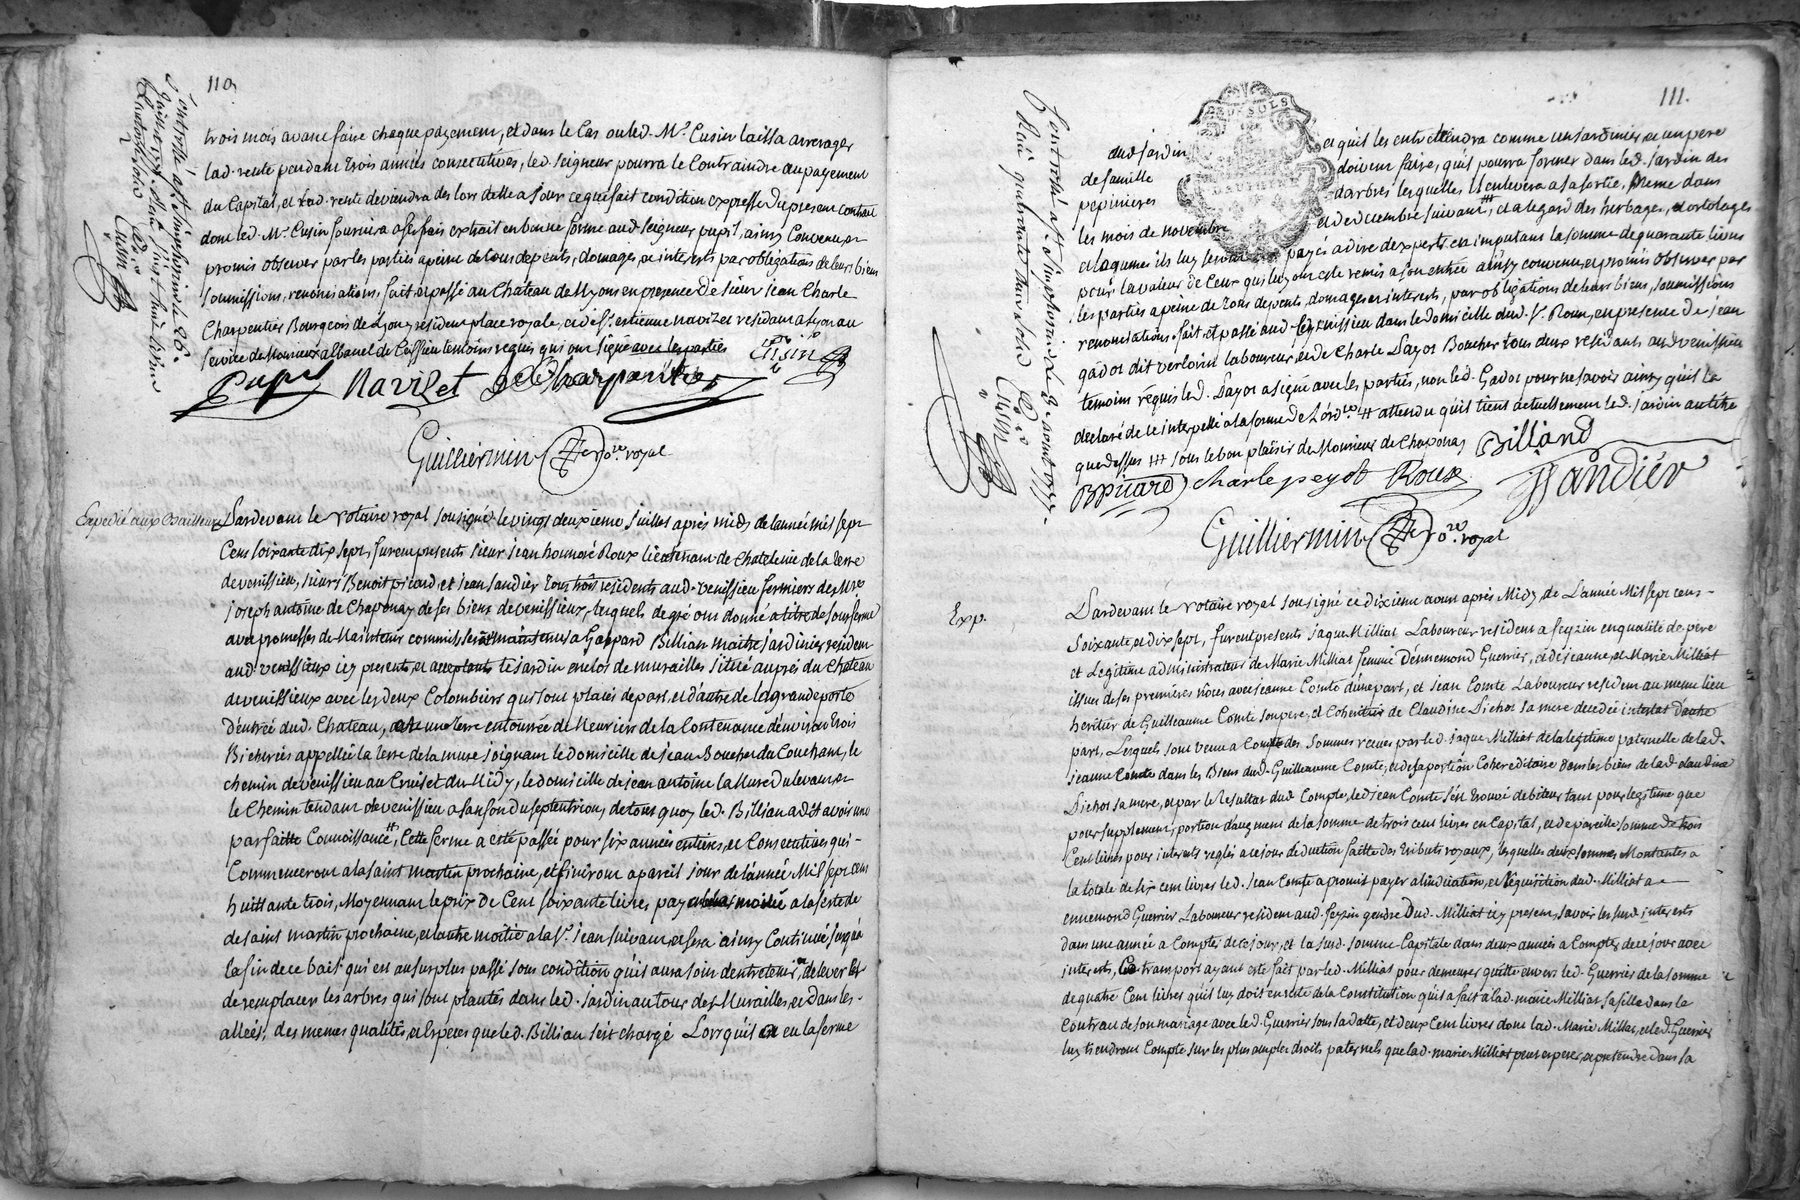 110.
trois mois avant faire chaque payement, et dans le Cas ou led. Mr. Cusin laissa arrerager
lad. rente pendant trois années consecutives, led. Seigneur pourra le Contraindre au payement
du Capital, et lad. rente deviendra des lors dette a jour ce qui fait condition expresse du present contrat
dont led. Mr. Cusin fournira a ses frais extrait en bonne forme aud. Seigneur pupil, ainsy Convenu, et
promis observer par les parties a peine de tous depents, domages, et interests par obligations de leurs biens
soumissions, renonciations, fait et passé au Chateau de Myons en presence de sieur jean Charle
Charpentier Bourgeois de Lyon y resident place royale, et de sr. estienne navizet resident a Lyon au
service de Monsieur albanel de Cessieu temoins requis qui ont signé avec les parties
Cusin
Pupil Navizet JCCharpentier
Guilliermin No.re royal
Controllé a St. Simphorin le 26.
juillet 1777. Reçu
Cusin
Expedié aux Bailleurs
Pardevant le Notaire royal soussigné le vingt deuxieme Juillet après midy de lannée mil sept
Cent soixante dix sept, furent presents sieur jean honnoré Roux lieutenant de Chatelenie de la terre
de venissieu, sieurs Benoit picard, et jean sandier tous trois residents aud. venissieu fermiers de Mre.
joseph antoine de Chaponay de ses biens de venissieux, lesquels de gré ont donné a titre de sous ferme
avec promesses de Maintenir a Gaspard Billian maitre jardinier resident
aud. venissieux icy present, et acceptant le jardin enclos de murailles situé auprès du Chateau
de venissieux avec les deux Colombiers qui sont placés de part, et d'autre de la grande porte
d'entrée dud. Chateau, et une terre entourrée de Meuriers de la Contenance d'environ trois
Bicherées appellée la terre de la mure joignant le domicille de jean Boucher du Couchant, le
chemin de venissieu au Creuset du Midy, le domicille de jean antoine la Mure du levant et
le Chemin tendant de venissieu a sanson du septentrion, de tout quoy led. Billian a dit avoir une
parfaitte Connoissance, Cette ferme a esté passée pour six années entieres, et Consecutives qui
Commenceront a la saint martin prochaine, et finiront a pareil jour de l'année Mil sept cent
huittante trois, Moyennant le prix de Cent soixante livres, payable moitié a la feste de
de saint martin prochaine, et autre moitié a la St. jean suivant, et sera ainsy Continué jusqu'a
la fin de ce bail qui est au surplus passé sous condition qu'il aura soin d'entretenir, de lever et
de remplacer les arbres qui sont plantés dans led. jardin autour des Murailles et dans les
allées, des memes qualités, et especes que led. Billian s'est chargé Lorsqu'il en eu la ferme
111.
DEUX SOLS
DAUPHINE
dud. jardin et quil les entretiendra comme un jardinier, et un père
de famille doivent faire, quil pourra former dans led. jardin des
pepinieres d'arbres lesquelles il enlevera a sa sortie, Meme dans
les mois de novembre et de decembre suivant, et a legard des herbages, et ortolages
et legumes ils luy seront payés a dire d'experts en imputant la somme de quarante livres
pour la valeur de Ceux qui luy ont este remis a son entrée ainsy convenu, et promis observer par
les parties a peine de tous depents, domages et interests, par obligations de leurs biens, soumissions
renonciations, fait et passé aud. venissieu dans le domicille dud. Sr. Roux, en presence de jean
gadot dit verloint laboureur, et de Charle Payot Boucher tous deux residants aud. venissieu
temoins requis led. Payot a signé avec les parties, non led. Gadot pour ne savoir ainsy qu'il la
declaré de ce interpellé a la forme de Lord.ce attendu quil tient actuellement led. jardin au titre
que dessus sous le bon plaisir de Monsieur de Chaponay
Billiand
BPicard charle peyot Roux JSandiér
Guilliermin No.re royal
Controllé a St. Simphorin le 3. aout 1777.
Cusin
Exp.
Pardevant le Notaire royal soussigné ce dixieme aout après Midy, de L'année Mil sept cent
Soixante, et dix sept, furent presents jaque Milliat Laboureur resident a feyzin en qualité de père
et Legitime administrateur de Marie Milliat femme d'ennemond Guerrier, et de jeanne, et Marie Milliat
issues de ses premieres nôces avec jeanne Comte d'une part, et jean Comte Laboureur resident au meme lieu
heritier de Guilleaume Comte son pere, et Coheritier de Claudine Pichot sa mere decedée intestat d'autre
part, Lesquels sont venus a Compte des sommes reçues par led. jaque Milliat de la legitime paternelle de lad.
jeanne Comte dans les Biens dud. Guilleaume Comte, et de sa portion Cohereditaire dans les biens de lad. claudine
Pichot sa mere, et par le Resultat dud. Compte, led. jean Comte s'est trouvé debiteur tant pour legitime que
pour supplement, portion d'augment de la somme de trois cent livres en Capital, et de pareille somme de trois
Cent livres pour interets reglés a ce jour deduction faitte des tributs royaux, lesquelles deux sommes Montantes a
la totale de six cent livres led. jean Comte a promis payer a l'indication, et Requisition dud. Milliat a
ennemond Guerrier Laboureur resident aud. feyzin gendre Dud. Milliat icy present, savoir les susd. interets
dans une année a Compter de ce jour, et la susd. somme Capitale dans deux années a Compter de ce jour avec
interets, Ce transport ayant esté fait par led. Milliat pour demeurer quitte envers led. Guerrier de la somme
de quatre Cent livres quil luy doit en reste de la Constitution quil a fait a lad. marie Milliat sa fille dans le
Contrat de son mariage avec led. Guerrier sous sa datte, et deux Cent livres dont lad. Marie Milliat, et led. Guerrier
luy tiendront Compte sur les plus amples droits paternels que lad. marie Milliat peut esperer, et pretendre dans sa